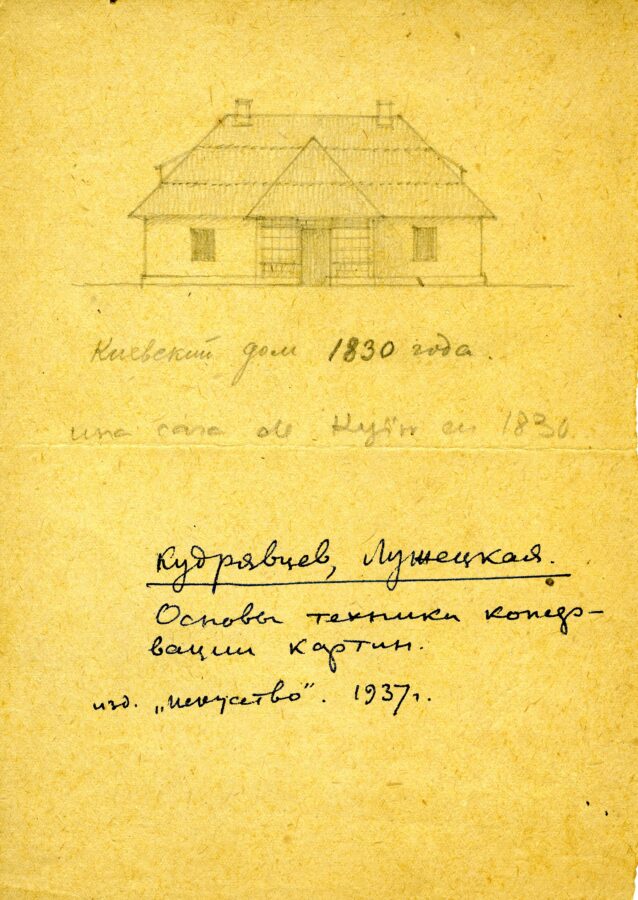 Киевский дом 1830 года.
una casa de Kyïv en 1830
Кудрявцев, Лужецкая.
Основы техники консер-
вации картин.
изд. „Искусство". 1937г.